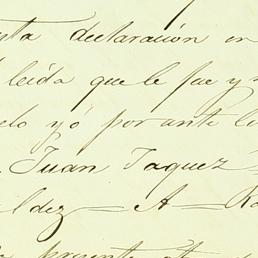 sta declaración en
leída que le fue y
elo yó por ante
Juan Jaquez
ldez — A — Ro
presente